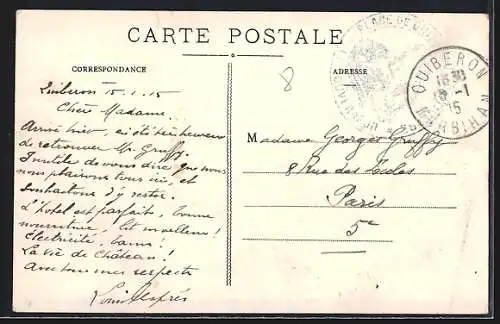 CARTE POSTALE
CORRESPONDANCE
ADRESSE
8
PLACE DE
QUIBERON
MORBIHAN
Quiberon 15.1.15
Chère Madame.
Arrivé hier, ai été bien heureux
de retrouver Mr. Gruffy.
Inutile de vous dire que nous
nous plaisons tous ici, et
souhaitons d'y rester.
L'hôtel est parfait, bonne
nourriture, lit merveilleux!
Electricité, bains!
La vie de Château!
Avec tous mes respects
Louis
Madame Georges Gruffy
8 Rue des Ecoles
Paris
5e